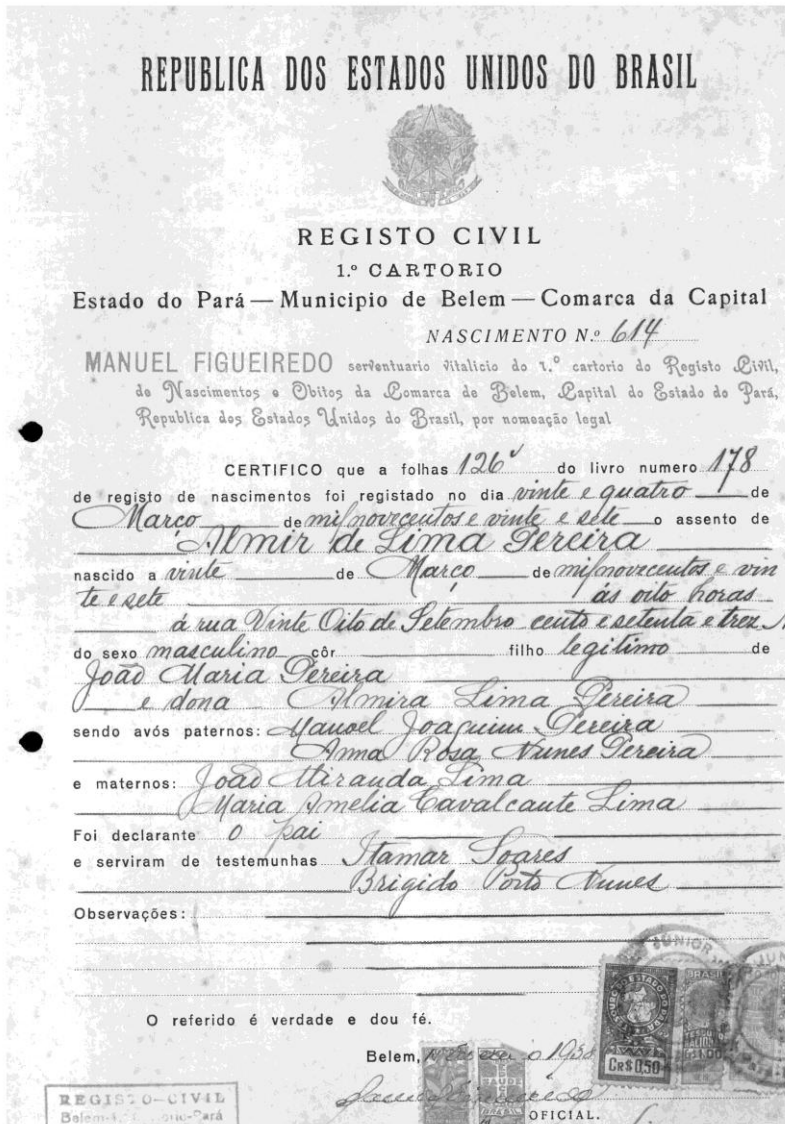 REPUBLICA DOS ESTADOS UNIDOS DO BRASIL
REGISTO CIVIL
1.º CARTORIO
Estado do Pará — Municipio de Belem — Comarca da Capital
NASCIMENTO N.º 614
MANUEL FIGUEIREDO serventuario vitalicio do 1.º cartorio do Registo Civil,
de Nascimentos e Obitos da Comarca de Belem, Capital do Estado do Pará,
Republica dos Estados Unidos do Brasil, por nomeação legal
CERTIFICO que a folhas 126v do livro numero 178
de registo de nascimentos foi registado no dia vinte e quatro de
Março de mil novecentos e vinte e sete o assento de
Almir de Lima Pereira
nascido a vinte de Março de mil novecentos e vin
te e sete ás oito horas
á rua Vinte Oito de Setembro cento e setenta e trez
do sexo masculino côr filho legitimo de
João Maria Pereira
e dona Almira Lima Pereira
sendo avós paternos: Manoel Joaquim Pereira
Anna Rosa Nunes Pereira
e maternos: João Miranda Lima
Maria Amelia Cavalcante Lima
Foi declarante o pai
e serviram de testemunhas Itamar Soares
Brigido Porto Nunes
Observações:
JUNIOR
O referido é verdade e dou fé.
BRASIL
Belem,
CR$ 0,50
OFICIAL.
REGISTO-CIVIL